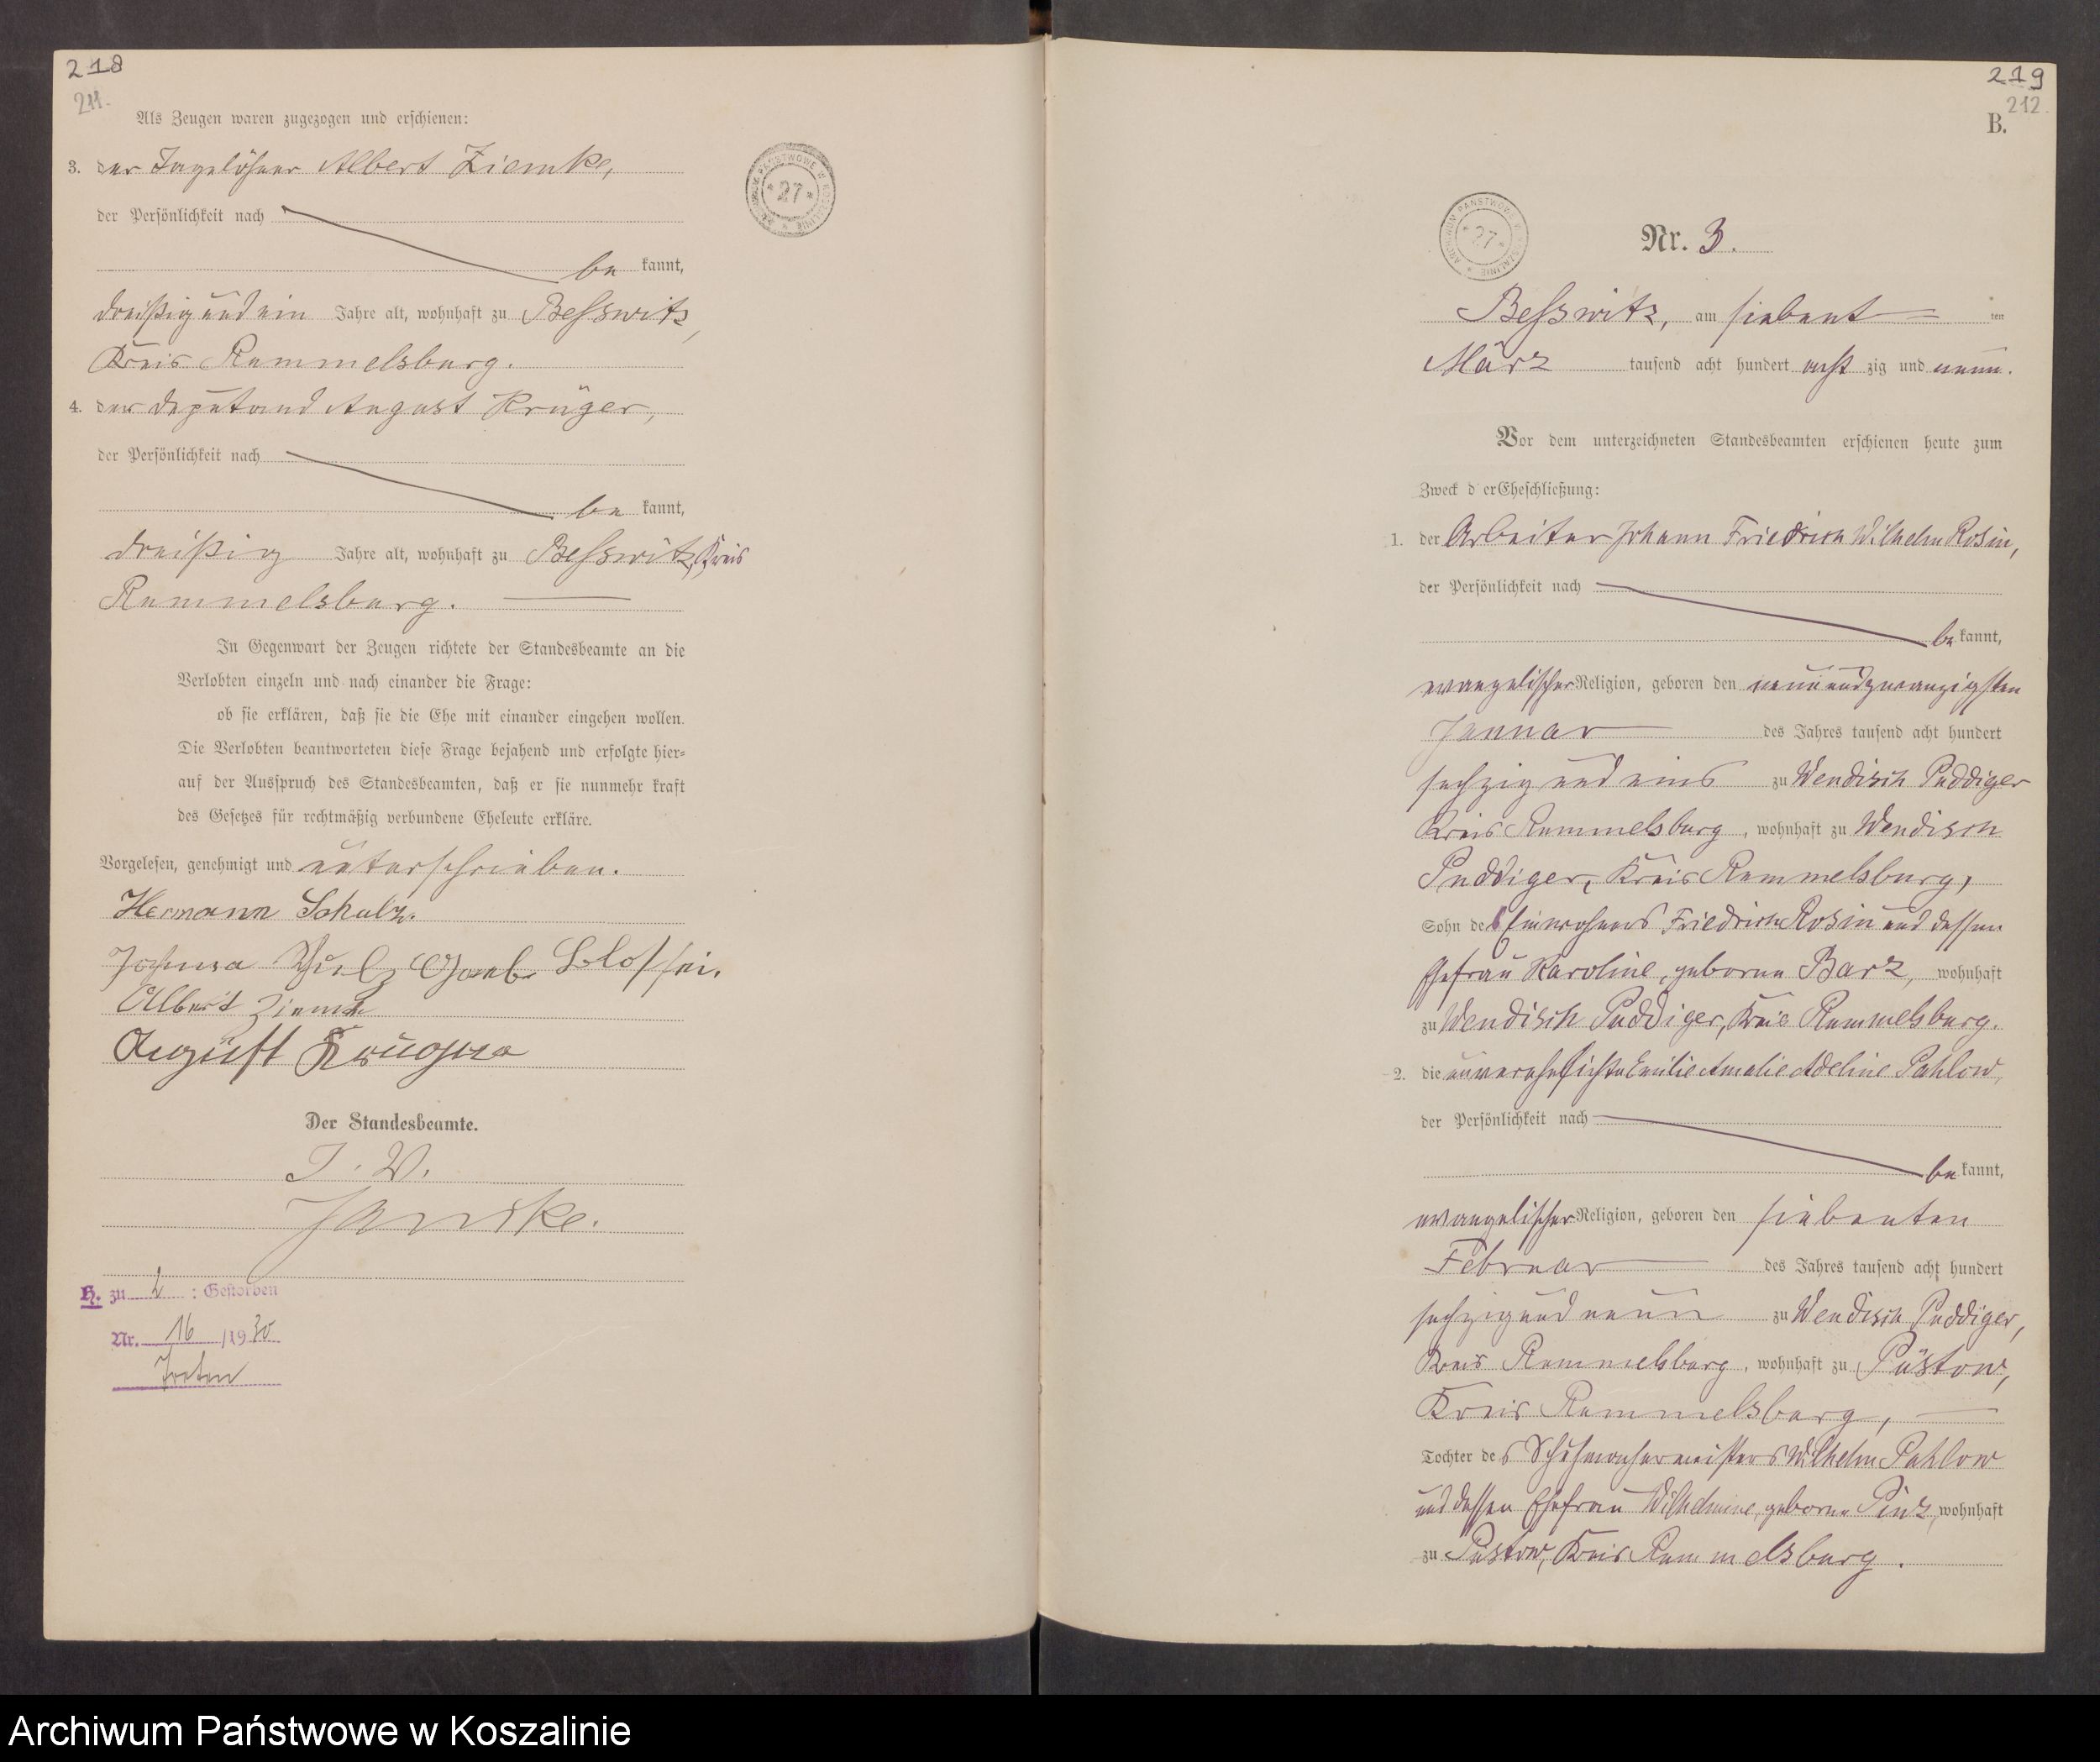 218
211.
Als Zeugen waren zugezogen und erschienen:
3. der Tagelöhner Albert Ziemke,
der Persönlichkeit nach
be kannt,
dreißig und ein Jahre alt, wohnhaft zu Besswitz,
Kreis Rummelsburg.
4. der Deputand August Krüger,
der Persönlichkeit nach
be kannt,
dreißig Jahre alt, wohnhaft zu Besswitz, Kreis
Rummelsburg.
In Gegenwart der Zeugen richtete der Standesbeamte an die
Verlobten einzeln und nach einander die Frage:
ob sie erklären, daß sie die Ehe mit einander eingehen wollen.
Die Verlobten beantworteten diese Frage bejahend und erfolgte hier-
auf der Ausspruch des Standesbeamten, daß er sie nunmehr kraft
des Gesetzes für rechtmäßig verbundene Eheleute erkläre.
Vorgelesen, genehmigt und unterschrieben.
Hermann Schulz.
Schulz Geb.
Albert Ziemke
August Krüger
Der Standesbeamte.
I. V.
Janske.
H. zu 2 : Gestorben
Nr. 16 /1930
Treten
ARCHIWUM PAŃSTWOWE W KOSZALINIE
* 27 *
219
212.
B.
ARCHIWUM PAŃSTWOWE W KOSZALINIE
* 27 *
Nr. 3.
Besswitz, am siebent ten
März tausend acht hundert acht zig und neun.
Vor dem unterzeichneten Standesbeamten erschienen heute zum
Zweck d erEheschließung:
1. der Arbeiter Johann Friedrich Wilhelm Rosin,
der Persönlichkeit nach
be kannt,
evangelischer Religion, geboren den neunundzwanzigsten
Januar des Jahres tausend acht hundert
sechzig und eins zu Wendisch Puddiger
Kreis Rummelsburg, wohnhaft zu Wendisch
Puddiger, Kreis Rummelsburg,
Sohn des Einwohners Friedrich Rosin und dessen
Ehefrau Karoline, geborne Barz, wohnhaft
zu Wendisch Puddiger, Kreis Rummelsburg.
2. die unverehelichte Emilie Amalie Adeline Pahlow,
der Persönlichkeit nach
be kannt,
evangelischer Religion, geboren den siebenten
Februar des Jahres tausend acht hundert
sechzig und neun zu Wendisch Puddiger,
Kreis Rummelsburg, wohnhaft zu Püstow,
Kreis Rummelsburg,
Tochter des Schuhmachermeisters Wilhelm Pahlow
und dessen Ehefrau Wilhelmine, geborne Pinz, wohnhaft
zu Püstow, Kreis Rummelsburg.
Archiwum Państwowe w Koszalinie